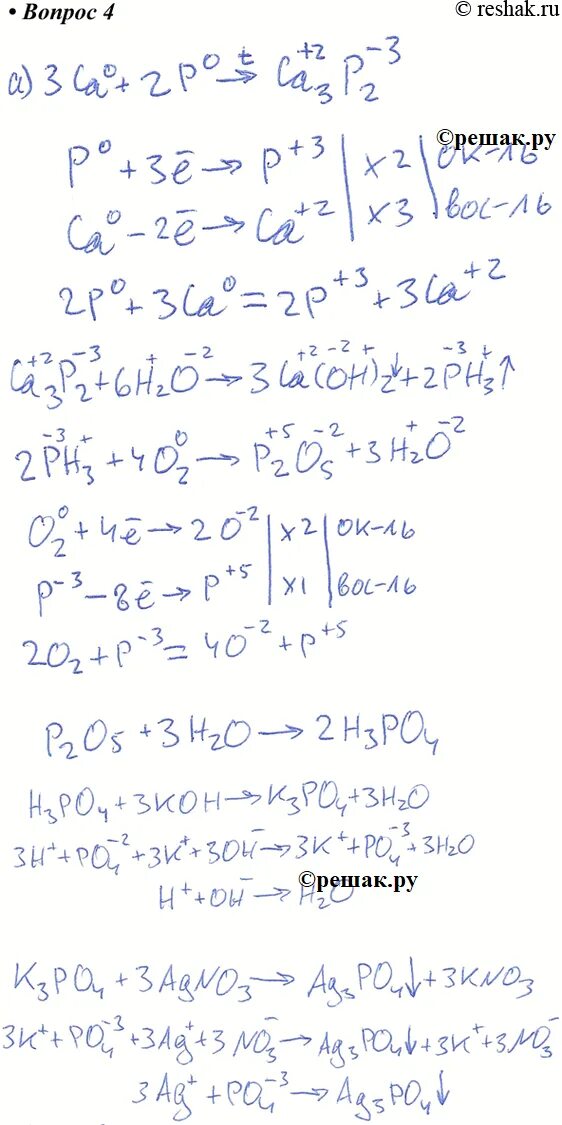 © reshak.ru
• Вопрос 4
а) 3Ca⁰ + 2P⁰ →ᵗ Ca₃⁺²P₂⁻³
©решак.ру
P⁰ + 3ē → P⁺³ | x2 | ок-ль
Ca⁰ - 2ē → Ca⁺² | x3 | вос-ль
2P⁰ + 3Ca⁰ = 2P⁺³ + 3Ca⁺²
Ca₃⁺²P₂⁻³ + 6H₂⁺O⁻² → 3Ca⁺²(O⁻²H⁺)₂↓ + 2P⁻³H₃⁺↑
2P⁻³H₃⁺ + 4O₂⁰ → P₂⁺⁵O₅⁻² + 3H₂⁺O⁻²
O₂⁰ + 4ē → 2O⁻² | x2 | ок-ль
P⁻³ - 8ē → P⁺⁵ | x1 | вос-ль
2O₂ + P⁻³ = 4O⁻² + P⁺⁵
P₂O₅ + 3H₂O → 2H₃PO₄
H₃PO₄ + 3KOH → K₃PO₄ + 3H₂O
3H⁺ + PO₄⁻² + 3K⁺ + 3OH⁻ → 3K⁺ + PO₄⁻³ + 3H₂O
©решак.ру
H⁺ + OH⁻ → H₂O
K₃PO₄ + 3AgNO₃ → Ag₃PO₄↓ + 3KNO₃
3K⁺ + PO₄⁻³ + 3Ag⁺ + 3NO₃⁻ → Ag₃PO₄↓ + 3K⁺ + 3NO₃⁻
3Ag⁺ + PO₄⁻³ → Ag₃PO₄↓